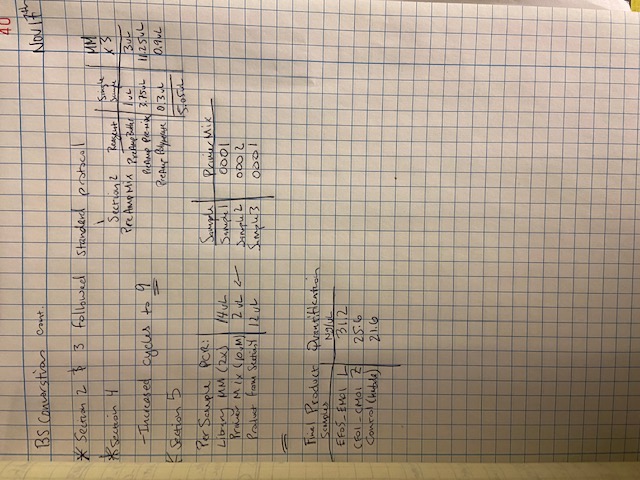 40
BS Converstion cont.
Nov 17th
* Section 2 & 3 followed standard protocol
* Section 4
- Increased cycles to 9
Section 2
PreAmp Mix
Reagent Single Sample MM x 3
PreAmp Buffer 1 uL 3 uL
PreAmp Pre-mix 3.75 uL 11.25 uL
PreAmp Polymerase 0.3 uL 0.9 uL
5.05 uL
* Section 5
Per Sample PCR:
Library MM (2x) 14 uL
Primer Mix (10uM) 2 uL
Product from Section 4 12 uL
Sample Primer Mix
Sample 1 0001
Sample 2 0002
Sample 3 0001
Final Product Quantification
Samples Ng/uL
EF05_EM01 31.2
CF01_CM01 25.6
Control 21.6